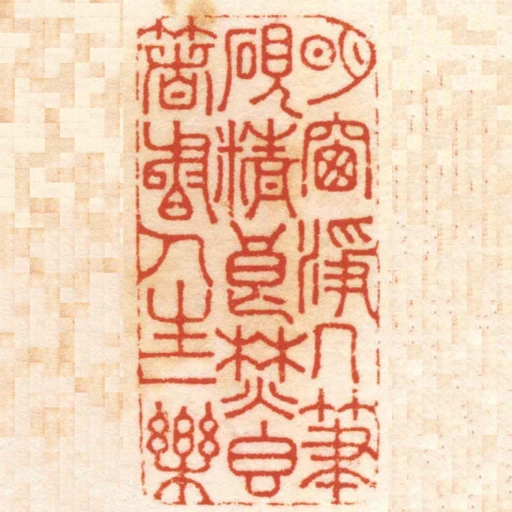 明窗淨几筆
硯精良焚香
著書人生一樂